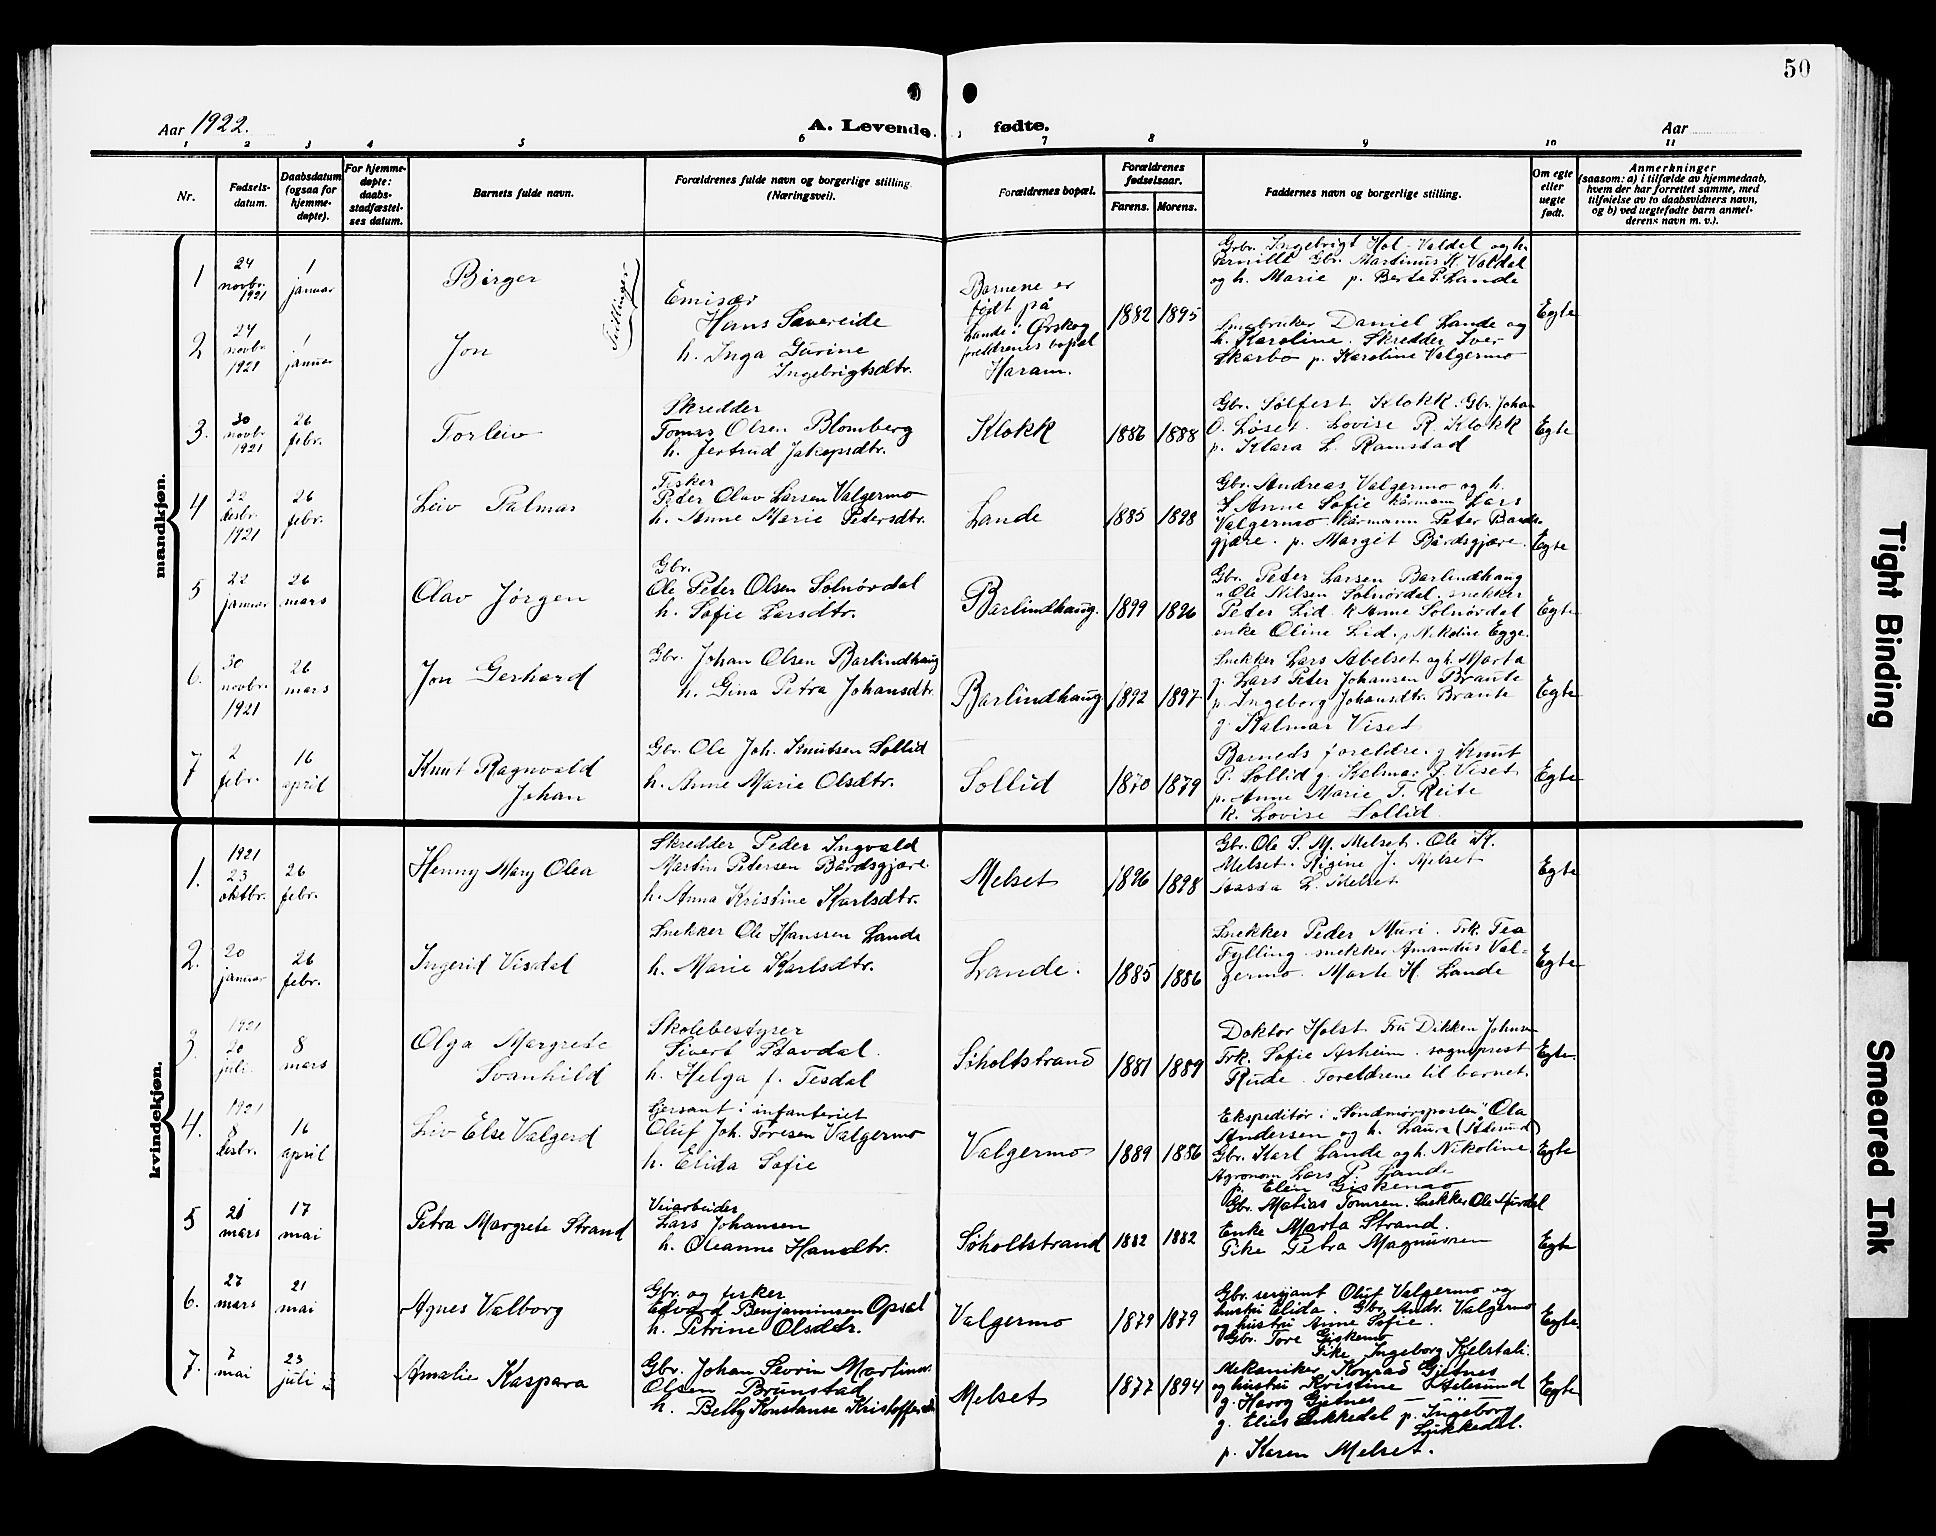 50
Aar 1922.
A. Levende
fødte.
Aar
1 2 3 4 5 6 7 8 9 10 11
Nr.
Fødsels-
datum.
Daabsdatum
(ogsaa for
hjemme-
døpte).
For hjemme-
døpte:
daabs-
stadfæstel-
ses datum.
Barnets fulde navn.
Forældrenes fulde navn og borgerlige stilling
(Næringsvei).
Forældrenes bopæl.
Forældrenes
fødselsaar.
Farens. Morens.
Faddernes navn og borgerlige stilling.
Om egte
eller
uegte
født.
Anmerkninger
(saasom: a) i tilfælde av hjemmedaab,
hvem der har forrettet samme, med
tilføielse av to daabsvidners navn,
og b) ved uegtefødte barn anmel-
derens navn m. v.).
mandkjøn.
1
24
novbr.
1921
1
januar
Birger
Tvillinger
Emisær
Hans Savereide
h. Inga Gurine
Ingebrigtsdtr.
Barnene er
født på
Lande i Ørskog
foreldrenes bopæl
Haram.
1882 1895
Gbr. Ingebrigt Hol-Valdal og h.
Pernille Gbr. Martinus K. Valdal
og h. Marie p. Berta P. Lande
Egte
2
24
novbr
1921
1
januar
Jon
Småbruker Daniel Lande og
h. Karoline. Skredder Iver
Skarbø p. Karoline Valgermo
3.
30
novbr.
1921
26
febr.
Torleiv
Skredder
Tomas Olsen Blomberg
h. Jertrud Jakopsdtr.
Klokk
1886 1888
Gbr. Sølfest Klokk. Gbr. Johan
O. Løset. Lovise R. Klokk
p. Klara L. Ramstad
Egte
4
22
desbr.
1921
26
febr.
Leiv Palmar
Fisker
Peder Olav Larsen Valgermo
h. Anne Marie Petersdtr.
Lande
1885 1898
Gbr. Andreas Valgermo og h.
Anne Sofie kårmann Lars
Valgermo kårmann Peter Bårds-
gjære. p. Margit Bårdsgjære.
Egte
5
22
januar
26
mars
Olav Jørgen
Gbr.
Ole Peter Olsen Solnørdal
h. Sofie Larsdtr.
Barlindhaug.
1899 1896
Gbr. Peter Larsen Barlindhaug
" Ole Nilsen Solnørdal. snekker
Peder Lid. k Anne Solnørdal
enke Oline Lid. p Nikoline Egge.
Egte
6.
30
novbr.
1921
26
mars
Jon Gerhard
Gbr. Johan Olsen Barlindhaug
h. Gina Petra Johansdtr.
Barlindhaug
1892 1897
Snekker Lars Abelset og h. Marta
g. Lars Peter Johansen Braute
p. Ingeborg Johansdtr. Braute
g. Kalmar Viset
Egte
7
2
febr.
16
april
Knut Ragnvald
Johan
Gbr. Ole Joh. Knutsen Sollid
h. Anne Marie Olsdtr.
Sollid
1870 1879
Barneds foreldre. g Knut
P. Sollid g. Kalmar P. Viset
p. Anne Marie T. Reite
k. Lovise Sollid
Egte
kvindekjøn.
1.
1921
23
oktbr.
26
febr.
Henny Mary Olea
Skredder Peder Ingvald
Martin Petersen Bårdsgjære
h. Anna Kristine Karlsdtr.
Melset
1896 1898
Gbr. Ole S. M. Melset. Ole K.
Melset. Rigine J. Melset
L. Melset
Egte
2.
20
januar
26
febr.
Ingerid Visdal
Snekker Ole Hanssen Lande
h. Marie Karlsdtr.
Lande.
1885 1886
Snekker Peder Muri. Frk. Tea
Fylling. snekker Amandus Val-
germo. Marte H. Lande
Egte
3.
1921
20
juli.
8
mars
Olga Margrete
Svanhild
Skolebestyrer
Sivert Stavdal.
h. Helga f. Tesdal
Søholtstrand
1881 1889
Doktor Holst Fru Dikken Johnsen
Frk. Sofie Asheim. sogneprest
Rude. Foreldrene til barnet.
Egte.
4.
1921
8
desbr.
16
april
Liv Else Valgerd
Sersant i infanteriet
Oluf Joh. Toresen Valgermo
h. Elida Sofie
Valgermo
1889 1886
Ekspeditør i "Søndmørsposten" Ola
Andersen og h. Laura (Ålesund)
Gbr. Karl Lande og h. Nikoline
Agronom Lars P. Lande
p. Elen Giskemo
Egte
5
21
mars
17
mai
Petra Margrete Strand
Veiarbeider
Lars Johansen
h. Oleanne Hansdtr.
Søholtstrand
1882 1882
Gbr. Matias Tomren. Snekker Ole Mürdal
Enke Marta Strand.
Pike Petra Magnussen
Egte
6.
27
mars
21
mai
Agnes Valborg
Gbr. og fisker
Edvard Benjaminsen Opsal
h. Petrine Olsdtr.
Valgermo
1879 1879
Gbr. sersjant Oluf Valgermo og
hustru Elida. Gbr. Andr. Valgermo
og hustru Anne Sofie.
Gbr. Tore Giskemo
Pike Ingeborg Kjelstali.
Egte.
7.
7
mai
23
juli
Amalie Kaspara
Gbr. Johan Sevrin Martinus
Olsen Brunstad
h. Betty Konstanse Kristoffersdtr
Melset
1877 1894
Mekaniker Konrad Gjetnes
og hustru Kristine Ålesund
g. Harry Gjetnes
g. Elias Lükkedal p. Ingeborg
Lükkedal.
p. Karen Melset.
Egte
Tight Binding
Smeared Ink